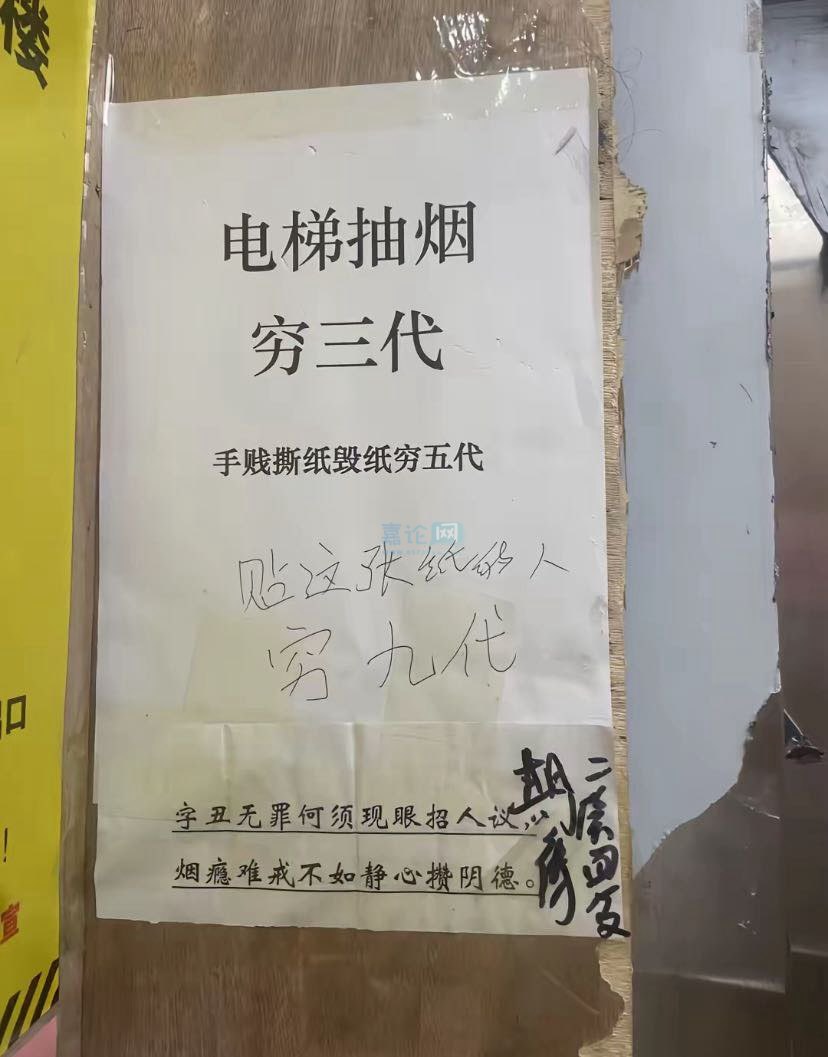 楼
电梯抽烟
穷三代
手贱撕纸毁纸穷五代
嘉论网
贴这张纸的人
穷九代
字丑无罪何须现眼招人议，
烟瘾难戒不如静心攒阴德。
口
！
宣